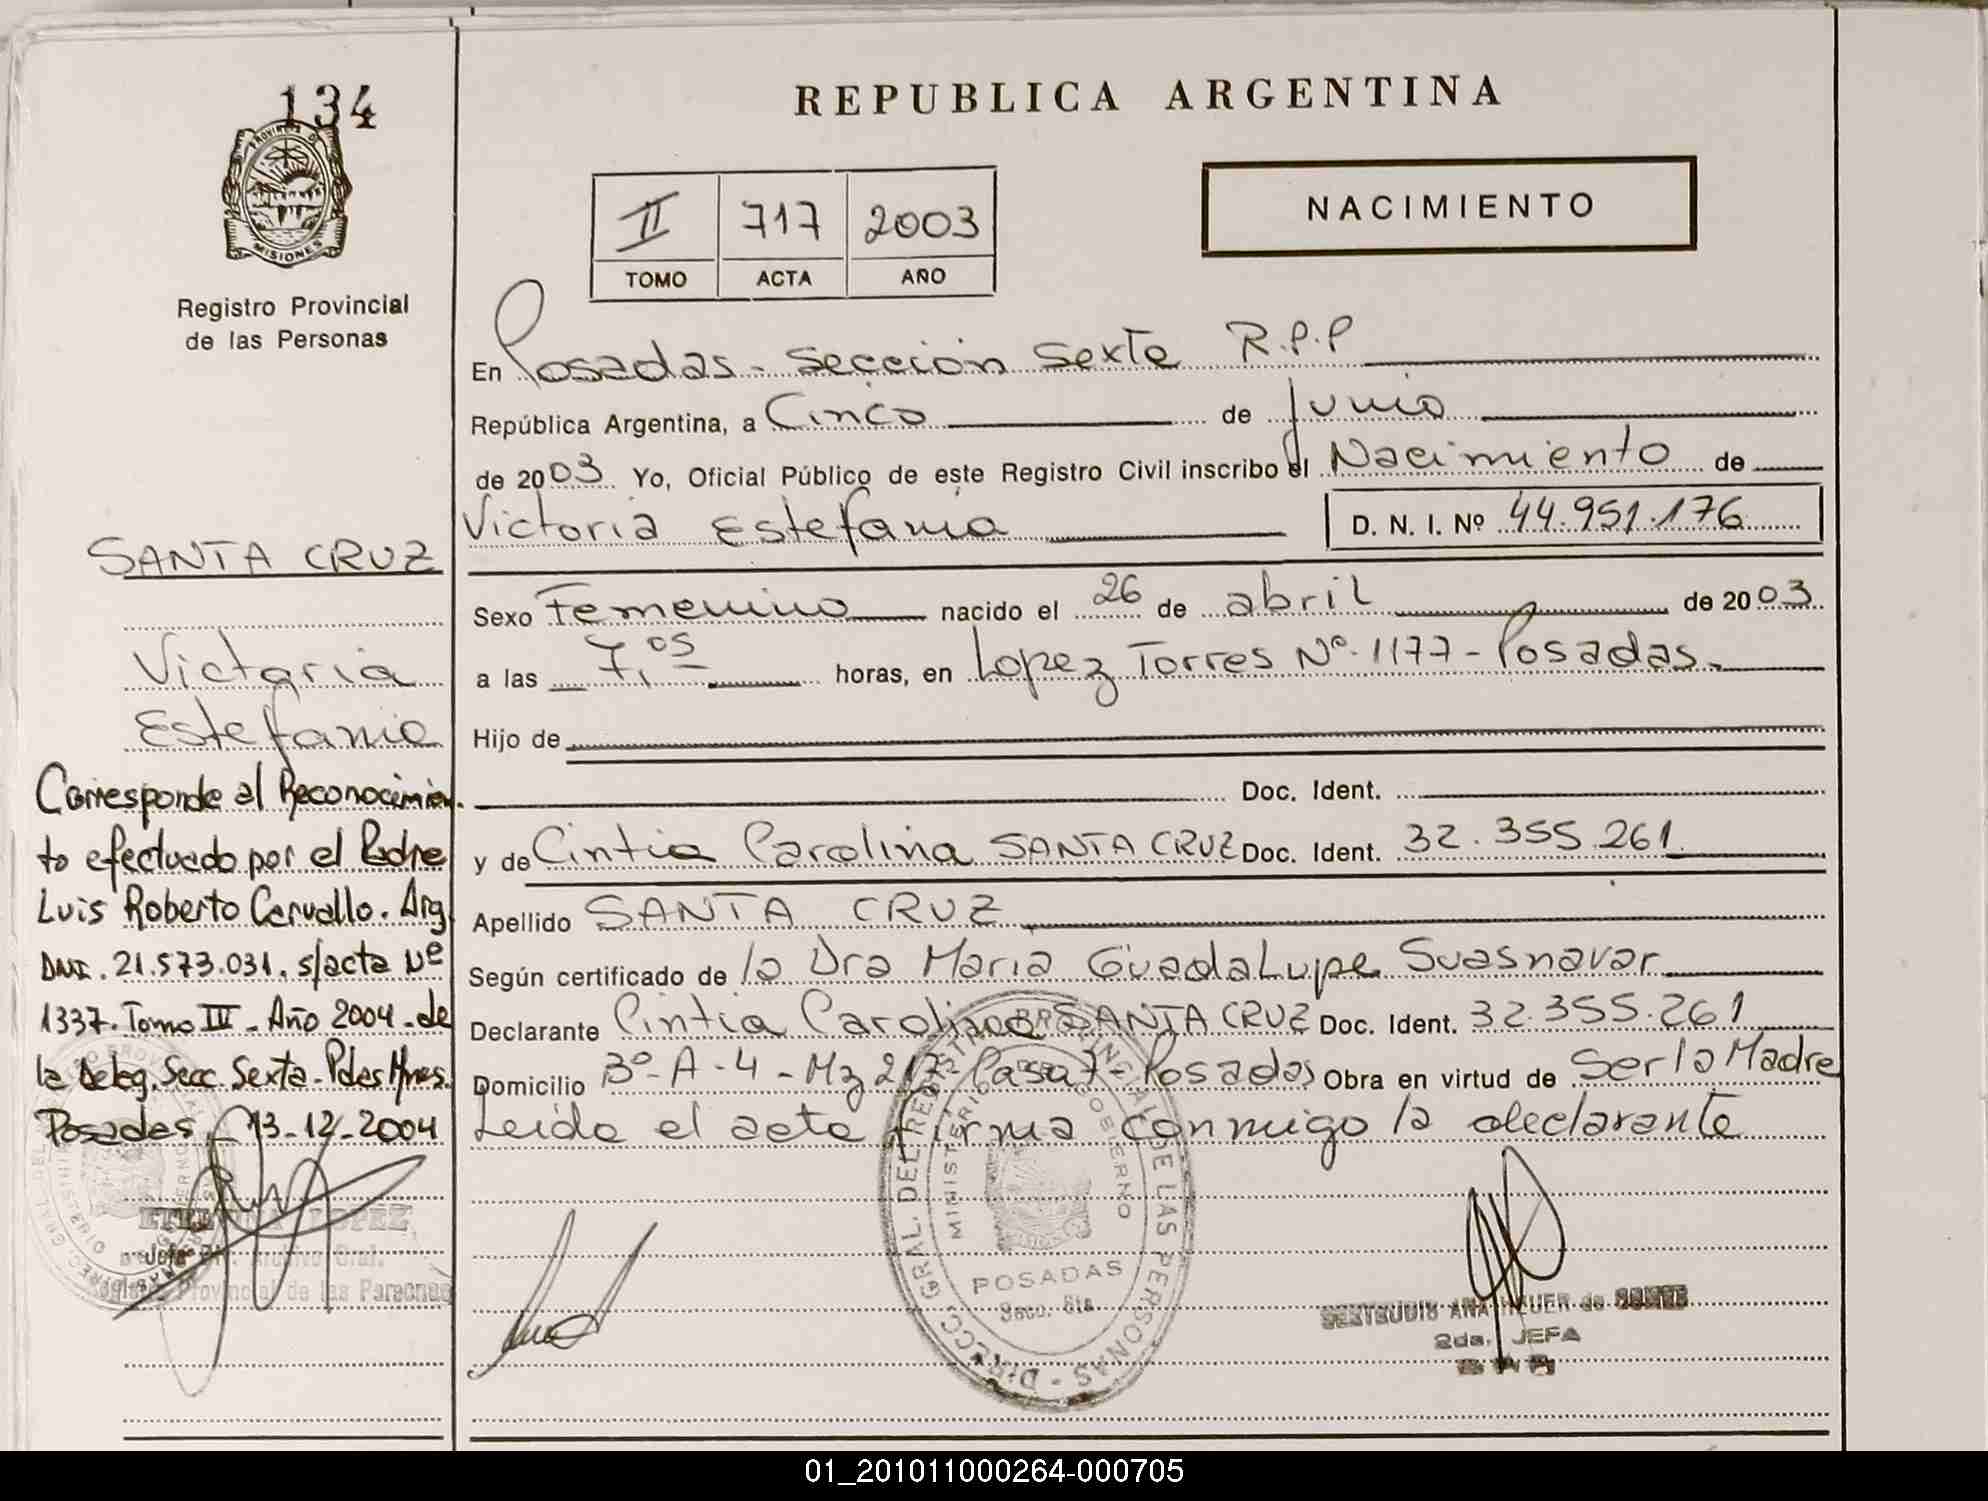 134
PROVINCIA DE
MISIONES
Registro Provincial
de las Personas
SANTA CRUZ
Victoria
Estefania
Corresponde al Reconocimien
to efectuado por el Padre
Luis Roberto Carvallo. Arg
DNI. 21.573.031. s/acta Nº
1337. Tomo III - Año 2004 - de
la Deleg. Secc. Sexta - Pdas Mnes.
Posadas, 13-12-2004
LOPEZ
Jefe Archivo Gral.
Provincial de las Personas
REPUBLICA ARGENTINA
NACIMIENTO
II 717 2003
TOMO ACTA AÑO
En Posadas - Sección Sexta R.P.P
República Argentina, a Cinco de Junio
de 2003 Yo, Oficial Público de este Registro Civil inscribo el Nacimiento de
Victoria Estefania D. N. I. Nº 44.951.176
Sexo Femenino nacido el 26 de abril de 2003
a las 7,05 horas, en Lopez Torres Nº 1177 - Posadas
Hijo de
Doc. Ident.
y de Cintia Carolina SANTA CRUZ Doc. Ident. 32.355.261
Apellido SANTA CRUZ
Según certificado de la Dra Maria Guadalupe Suasnavar
Declarante Cintia Carolina SANTA CRUZ Doc. Ident. 32.355.261
Domicilio Bº - A - 4 - Mz 217 - Casa 7 - Posadas Obra en virtud de Ser la Madre
Leída el acta firma conmigo la declarante
DIRECC. GRAL. DEL REGISTRO PROVINCIAL DE LAS PERSONAS
MINISTERIO GOBIERNO
POSADAS
Secc. 6ta
ANA HEUER de
2da. JEFA
01_201011000264-000705